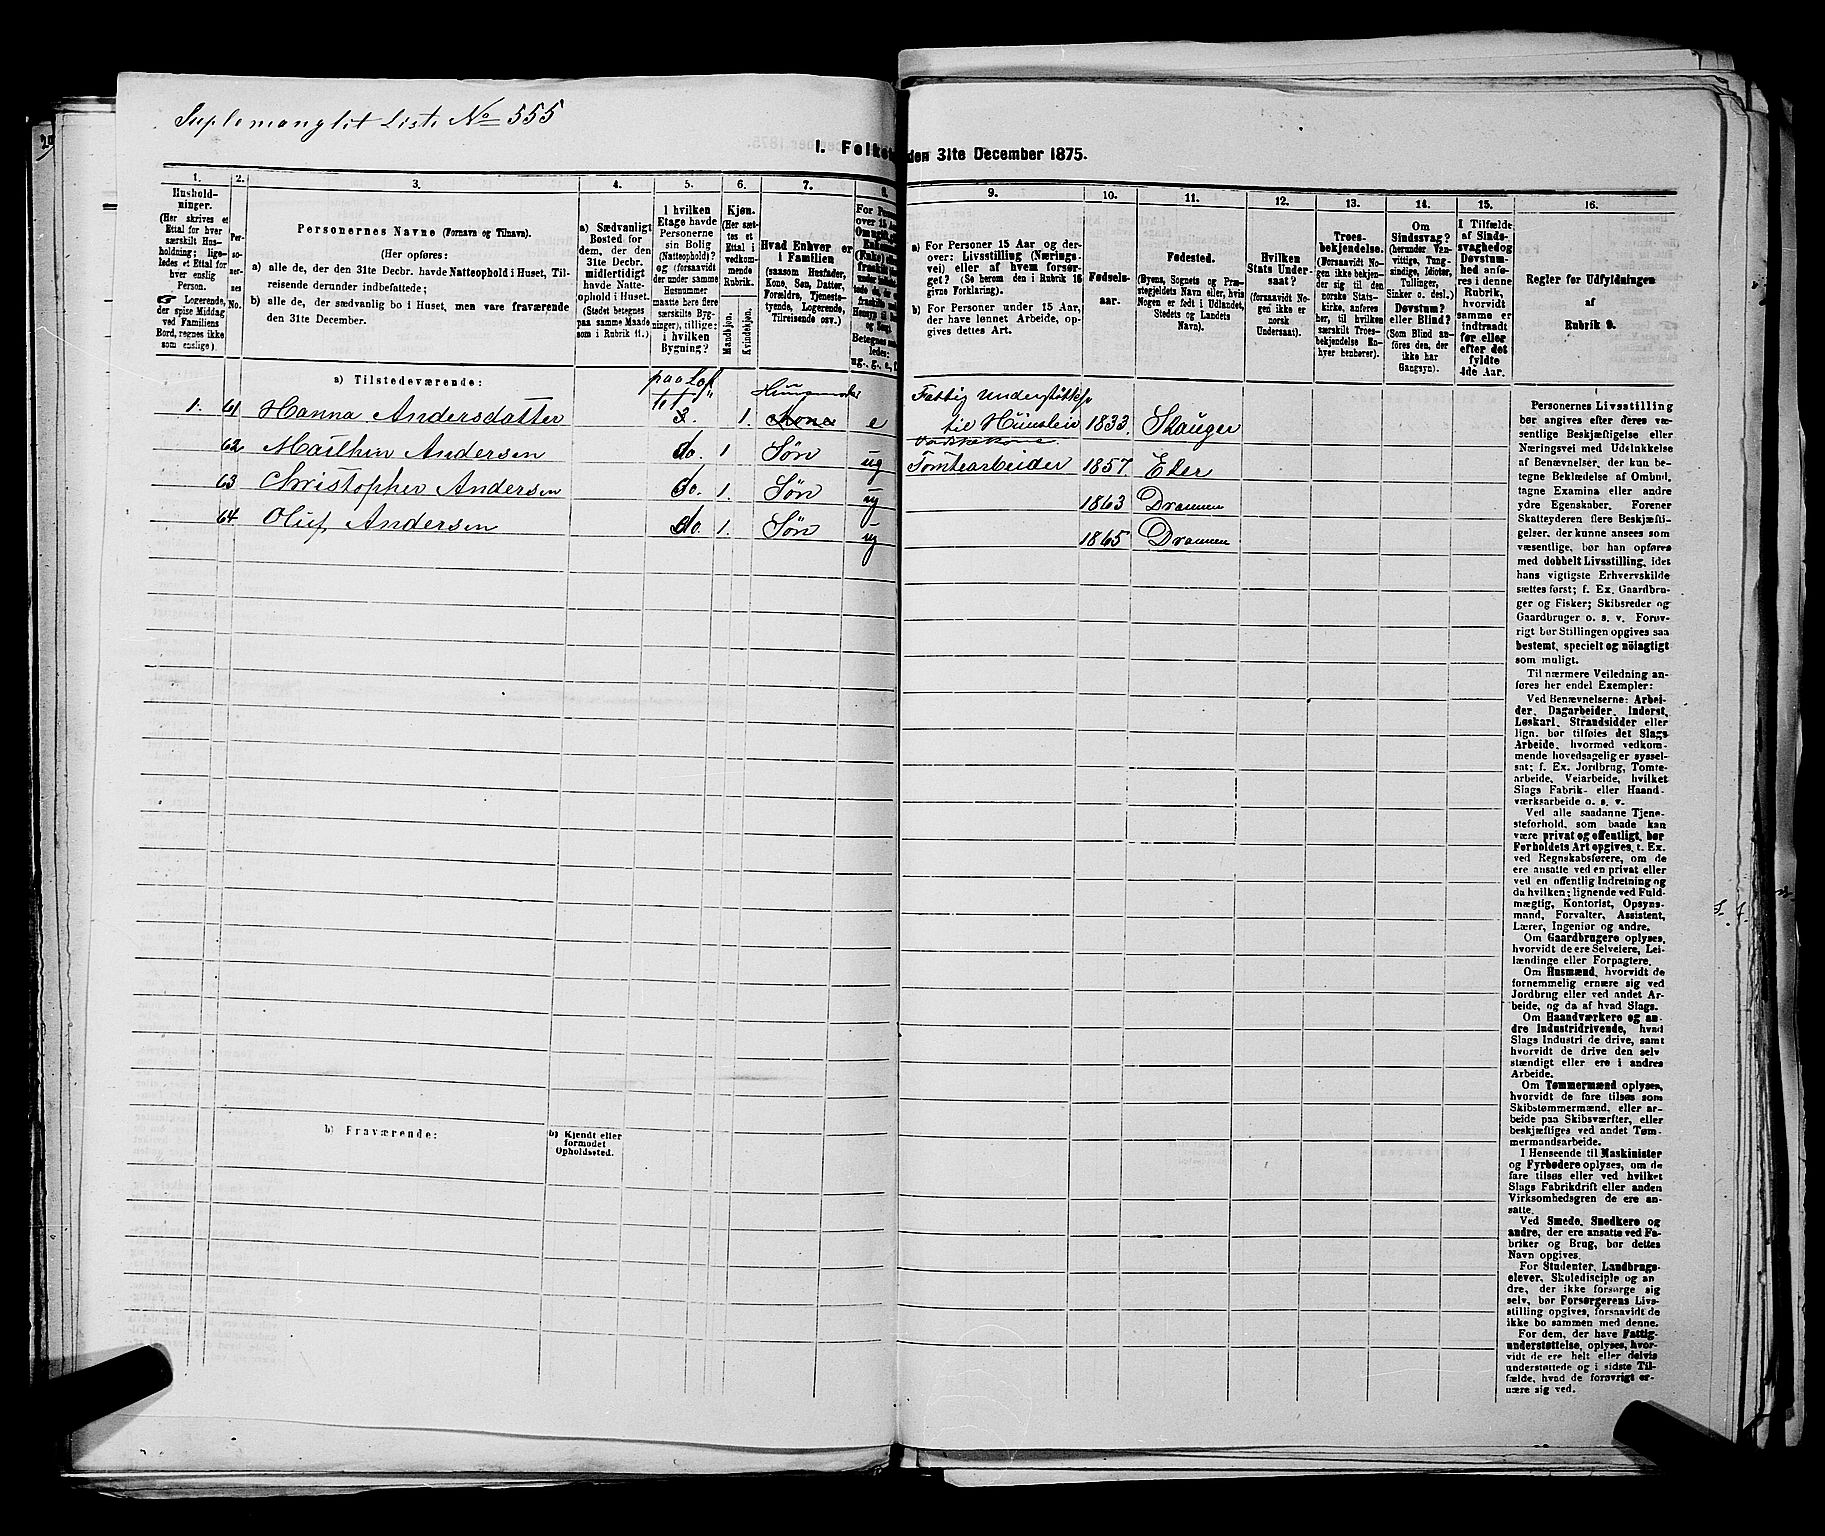 Suplemanglet Liste No 555
I. Folket
den 31te December 1875.
1.
Hushold-
ninger.
(Her skrives et
Ettal for hver
særskilt Hus-
holdning; lige-
ledes et Ettal for
hver enslig
Person.
Logerende,
der spise Middag
ved Familiens
Bord, regnes ikke
som enslige).
2.
Per-
so-
ner-
nes
No.
3.
Personernes Navne (Fornavn og Tilnavn).
(Her opføres:
a) alle de, der den 31te Decbr. havde Natteophold i Huset, Til-
reisende derunder indbefattede;
b) alle de, der sædvanlig bo i Huset, men vare fraværende
den 31te December.
4.
a) Sædvanligt
Bosted for
dem, der den
31te Decbr.
midlertidigt
havde Natte-
ophold i Huset.
(Stedet betegnes
paa samme Maade
som i Rubrik 11.)
5.
I hvilken
Etage havde
Personerne
sin Bolig
(Natteophold)?
og (forsaavidt
der under samme
Husnummer
maatte høre flere
særskilte Byg-
ninger), tillige:
i hvilken
Bygning?
6.
Kjøn.
(Her sæt-
tes et
Ettal i
vedkom-
mende
Rubrik.
Mandkjøn.
Kvindekjøn.
7.
Hvad Enhver er
i Familien
(saasom Husfader,
Kone, Søn, Datter,
Forældre, Tjeneste-
tyende, Logerende,
Tilreisende osv.)
8.
9.
a) For Personer 15 Aar og der-
over: Livsstilling (Nærings-
vei) eller af hvem forsør-
get? (Se herom den i Rubrik 16
givne Forklaring).
b) For Personer under 15 Aar,
der have lønnet Arbeide, op-
gives dettes Art.
10.
Fødsels-
aar.
11.
Fødested.
(Byens, Sognets og Præ-
stegjeldets Navn eller, hvis
Nogen er født i Udlandet,
Stedets og Landets
Navn).
12.
Hvilken
Stats Under-
saat?
(forsaavidt No-
gen ikke er
norsk
Undersaat).
13.
Troes-
bekjendelse.
(Forsaavidt No-
gen ikke bekjen-
der sig til den
norske Stats-
kirke, anføres
her, til hvilken
særskilt Troes-
bekjendelse En-
hver henhører).
14.
Om
Sindssvag?
(herunder Van-
vittige, Tung-
sindige, Idioter,
Tullinger,
Sinker o. desl.)
Døvstum?
eller Blind?
(Som Blind an-
føres den, der
ikke har
Gangsyn).
15.
I Tilfælde
af Sinds-
svaghed og
Døvstum-
hed anfø-
res i denne
Rubrik,
hvorvidt
samme er
indtraadt
før eller
efter det
fyldte
4de Aar.
16.
Regler for Udfyldningen
af
Rubrik 9.
a) Tilstedeværende:
paa Loft
Huusmoder
Fattig Understøttelse
1. 61 Hanna Andersdatter 3. 1. Kone e til Huusleie 1833. Skauger
62 Mailhin Andersen do. 1 Søn ug Tomtearbeider 1857. Eder
63 Christopher Andersen do. 1. Søn ug 1863 Drammen
64 Oluf Andersen do. 1. Søn ug 1865 Drammen
b) Fraværende:
b) Kjendt eller
formodet
Opholdssted.
Personernes Livsstilling
bør angives efter deres væ-
sentlige Beskjæftigelse eller
Næringsvei med Udelukkelse
af Benævnelser, der kun be-
tegne Beklædelse af Ombud,
tagne Examina eller andre
ydre Egenskaber. Forener
Skatteyderen flere Beskjæfti-
gelser, der kunne ansees som
væsentlige, bør han opføres
med dobbelt Livsstilling, idet
hans vigtigste Erhvervskilde
sættes først; f. Ex. Gaardbru-
ger og Fisker; Skibsreder og
Gaardbruger o. s. v. Forøv-
rigt bør Stillingen opgives saa
bestemt, specielt og nøiagtigt
som muligt.
Til nærmere Veiledning an-
føres her endel Exempler:
Ved Benævnelserne: Arbei-
der, Dagarbeider, Inderst,
Løskarl, Strandsidder eller
lign. bør tilføies det Slags
Arbeide, hvormed vedkom-
mende hovedsagelig er syssel-
sat; f. Ex. Jordbrug, Tomte-
arbeide, Veiarbeide, hvilket
Slags Fabrik- eller Haand-
værksarbeide o. s. v.
Ved alle saadanne Tjene-
steforhold, som baade kan
være privat og offentligt, bør
Forholdets Art opgives, t. Ex.
ved Regnskabsførere, om de
ere ansatte ved en privat eller
ved en offentlig Indretning og
da hvilken; lignende ved Fuld-
mægtig, Kontorist, Opsyns-
mand, Forvalter, Assistent,
Lærer, Ingeniør og andre.
Om Gaardbrugere oplyses,
hvorvidt de ere Selveiere, Lei-
lændinge eller Forpagtere.
Om Husmænd, hvorvidt de
fornemmelig ernære sig ved
Jordbrug eller ved andet Ar-
beide, og da af hvad Slags.
Om Haandværkere og an-
dre Industridrivende, hvad
Slags Industri de drive, samt
hvorvidt de drive den selv-
stændigt eller ere i andres
Arbeide.
Om Tømmermænd oplyses,
hvorvidt de fare tilsøs som
Skibstømmermænd, eller ar-
beide paa Skibsværfter, eller
beskjæftiges ved andet Tøm-
mermandsarbeide.
I Henseende til Maskinister
og Fyrbødere oplyses, om de
fare tilsøs eller ved hvilket
Slags Fabrikdrift eller anden
Virksomhedsgren de ere an-
satte.
Ved Smede, Snedkere og
andre, der ere ansatte ved Fa-
briker og Brug, bør dettes
Navn opgives.
For Studenter, Landbrugs-
elever, Skoledisciple og an-
dre, der ikke forsørge sig
selv, bør Forsørgerens Livs-
stilling opgives, forsaavidt de
ikke bo sammen med denne.
For dem, der have Fattig-
understøttelse, oplyses, hvor-
vidt de ere helt eller delvis
understøttede og i sidste Til-
fælde, hvad de forøvrigt er-
nære sig ved.